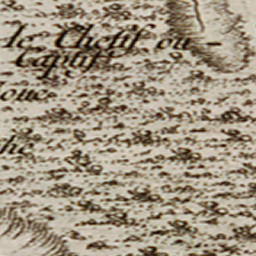 le Chetif ou
Captif
oue
he